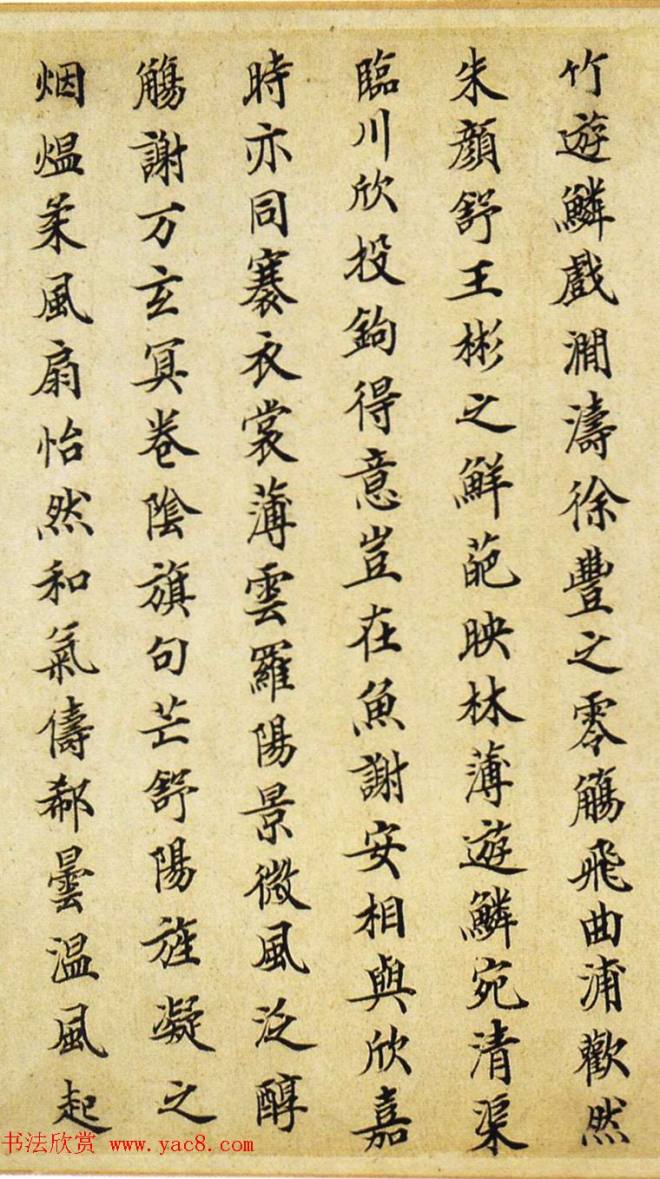 竹遊鱗戲澗濤徐豐之零觴飛曲浦歡然
朱顏舒王彬之鮮葩映林薄遊鱗宛清渠
臨川欣投鉤得意豈在魚謝安相與欣嘉
時亦同褰衣裳薄雲羅陽景微風泛醇
觴謝万玄冥卷陰旗句芒舒陽旌凝之
烟熅柔風扇怡然和氣儔郗曇温風起
书法欣赏 www.yac8.com